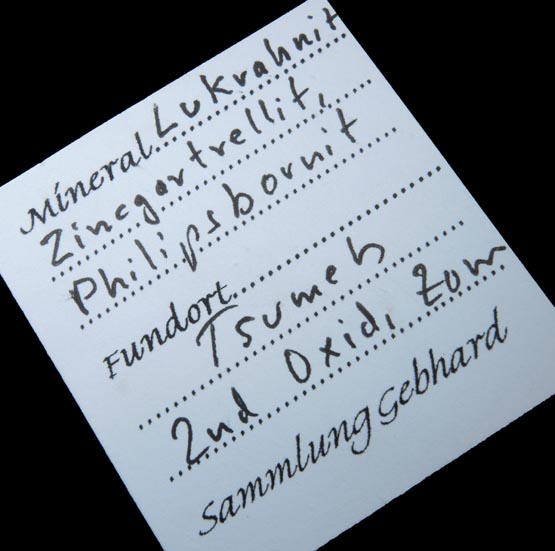 Mineral Lukrahnit
Zincgartrellit,
Philipsbornit
Fundort
Tsumeb
2nd Oxid. Zow
Sammlung Gebhard